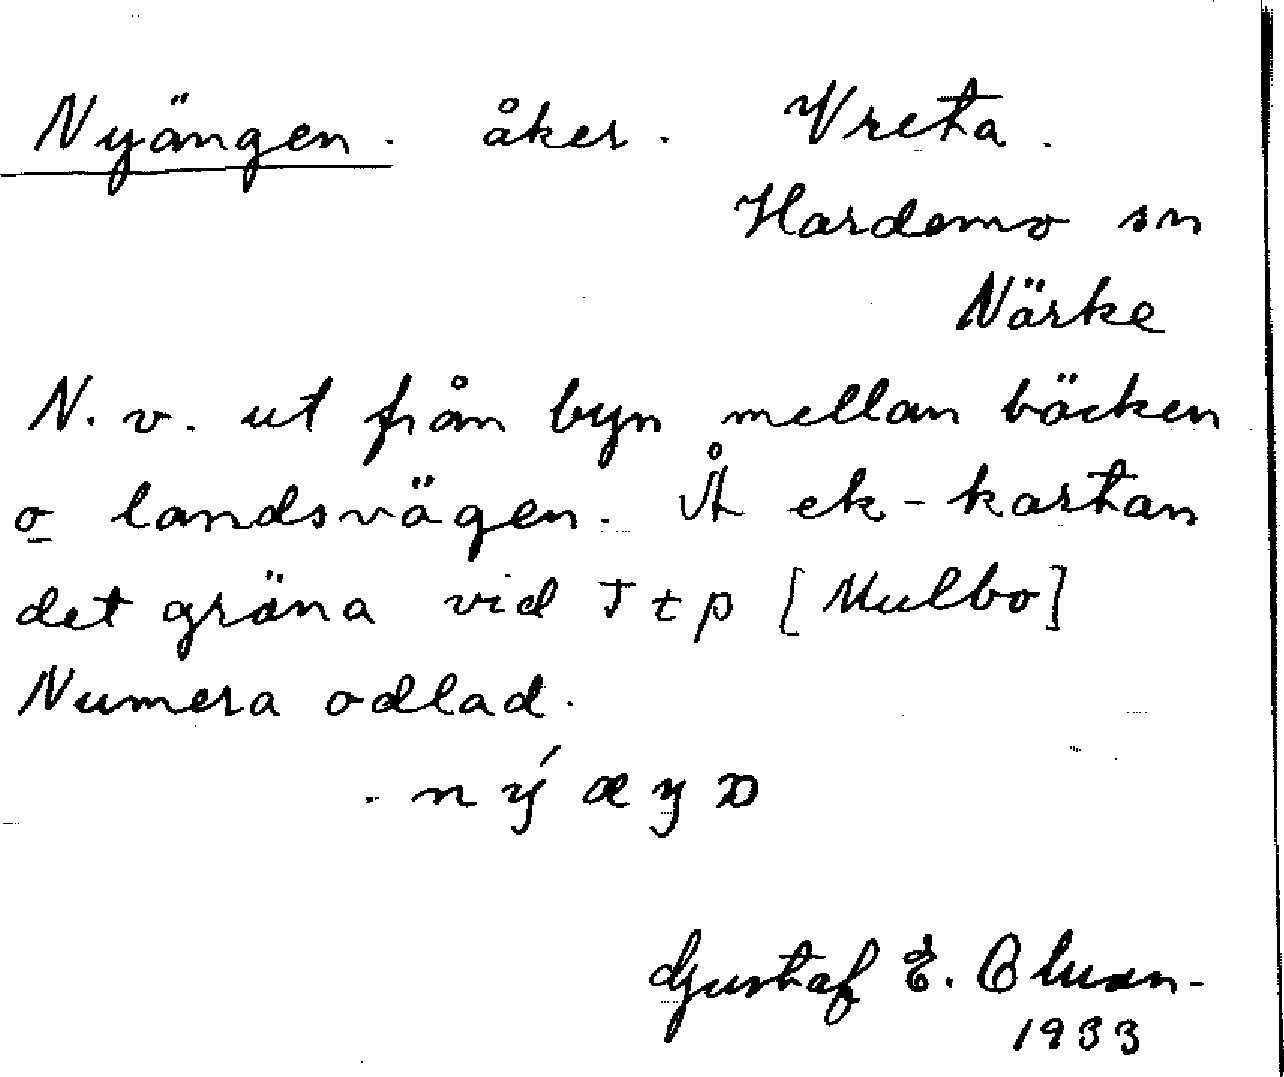 Nyängen. åker. Vreta.
Hardemo sn
Närke
N. v. ut från byn mellan bäcken
o landsvägen. Å ek-kartan
det gröna vid Ttp [Mulbo]
Numera odlad.
Gustaf E.
1933